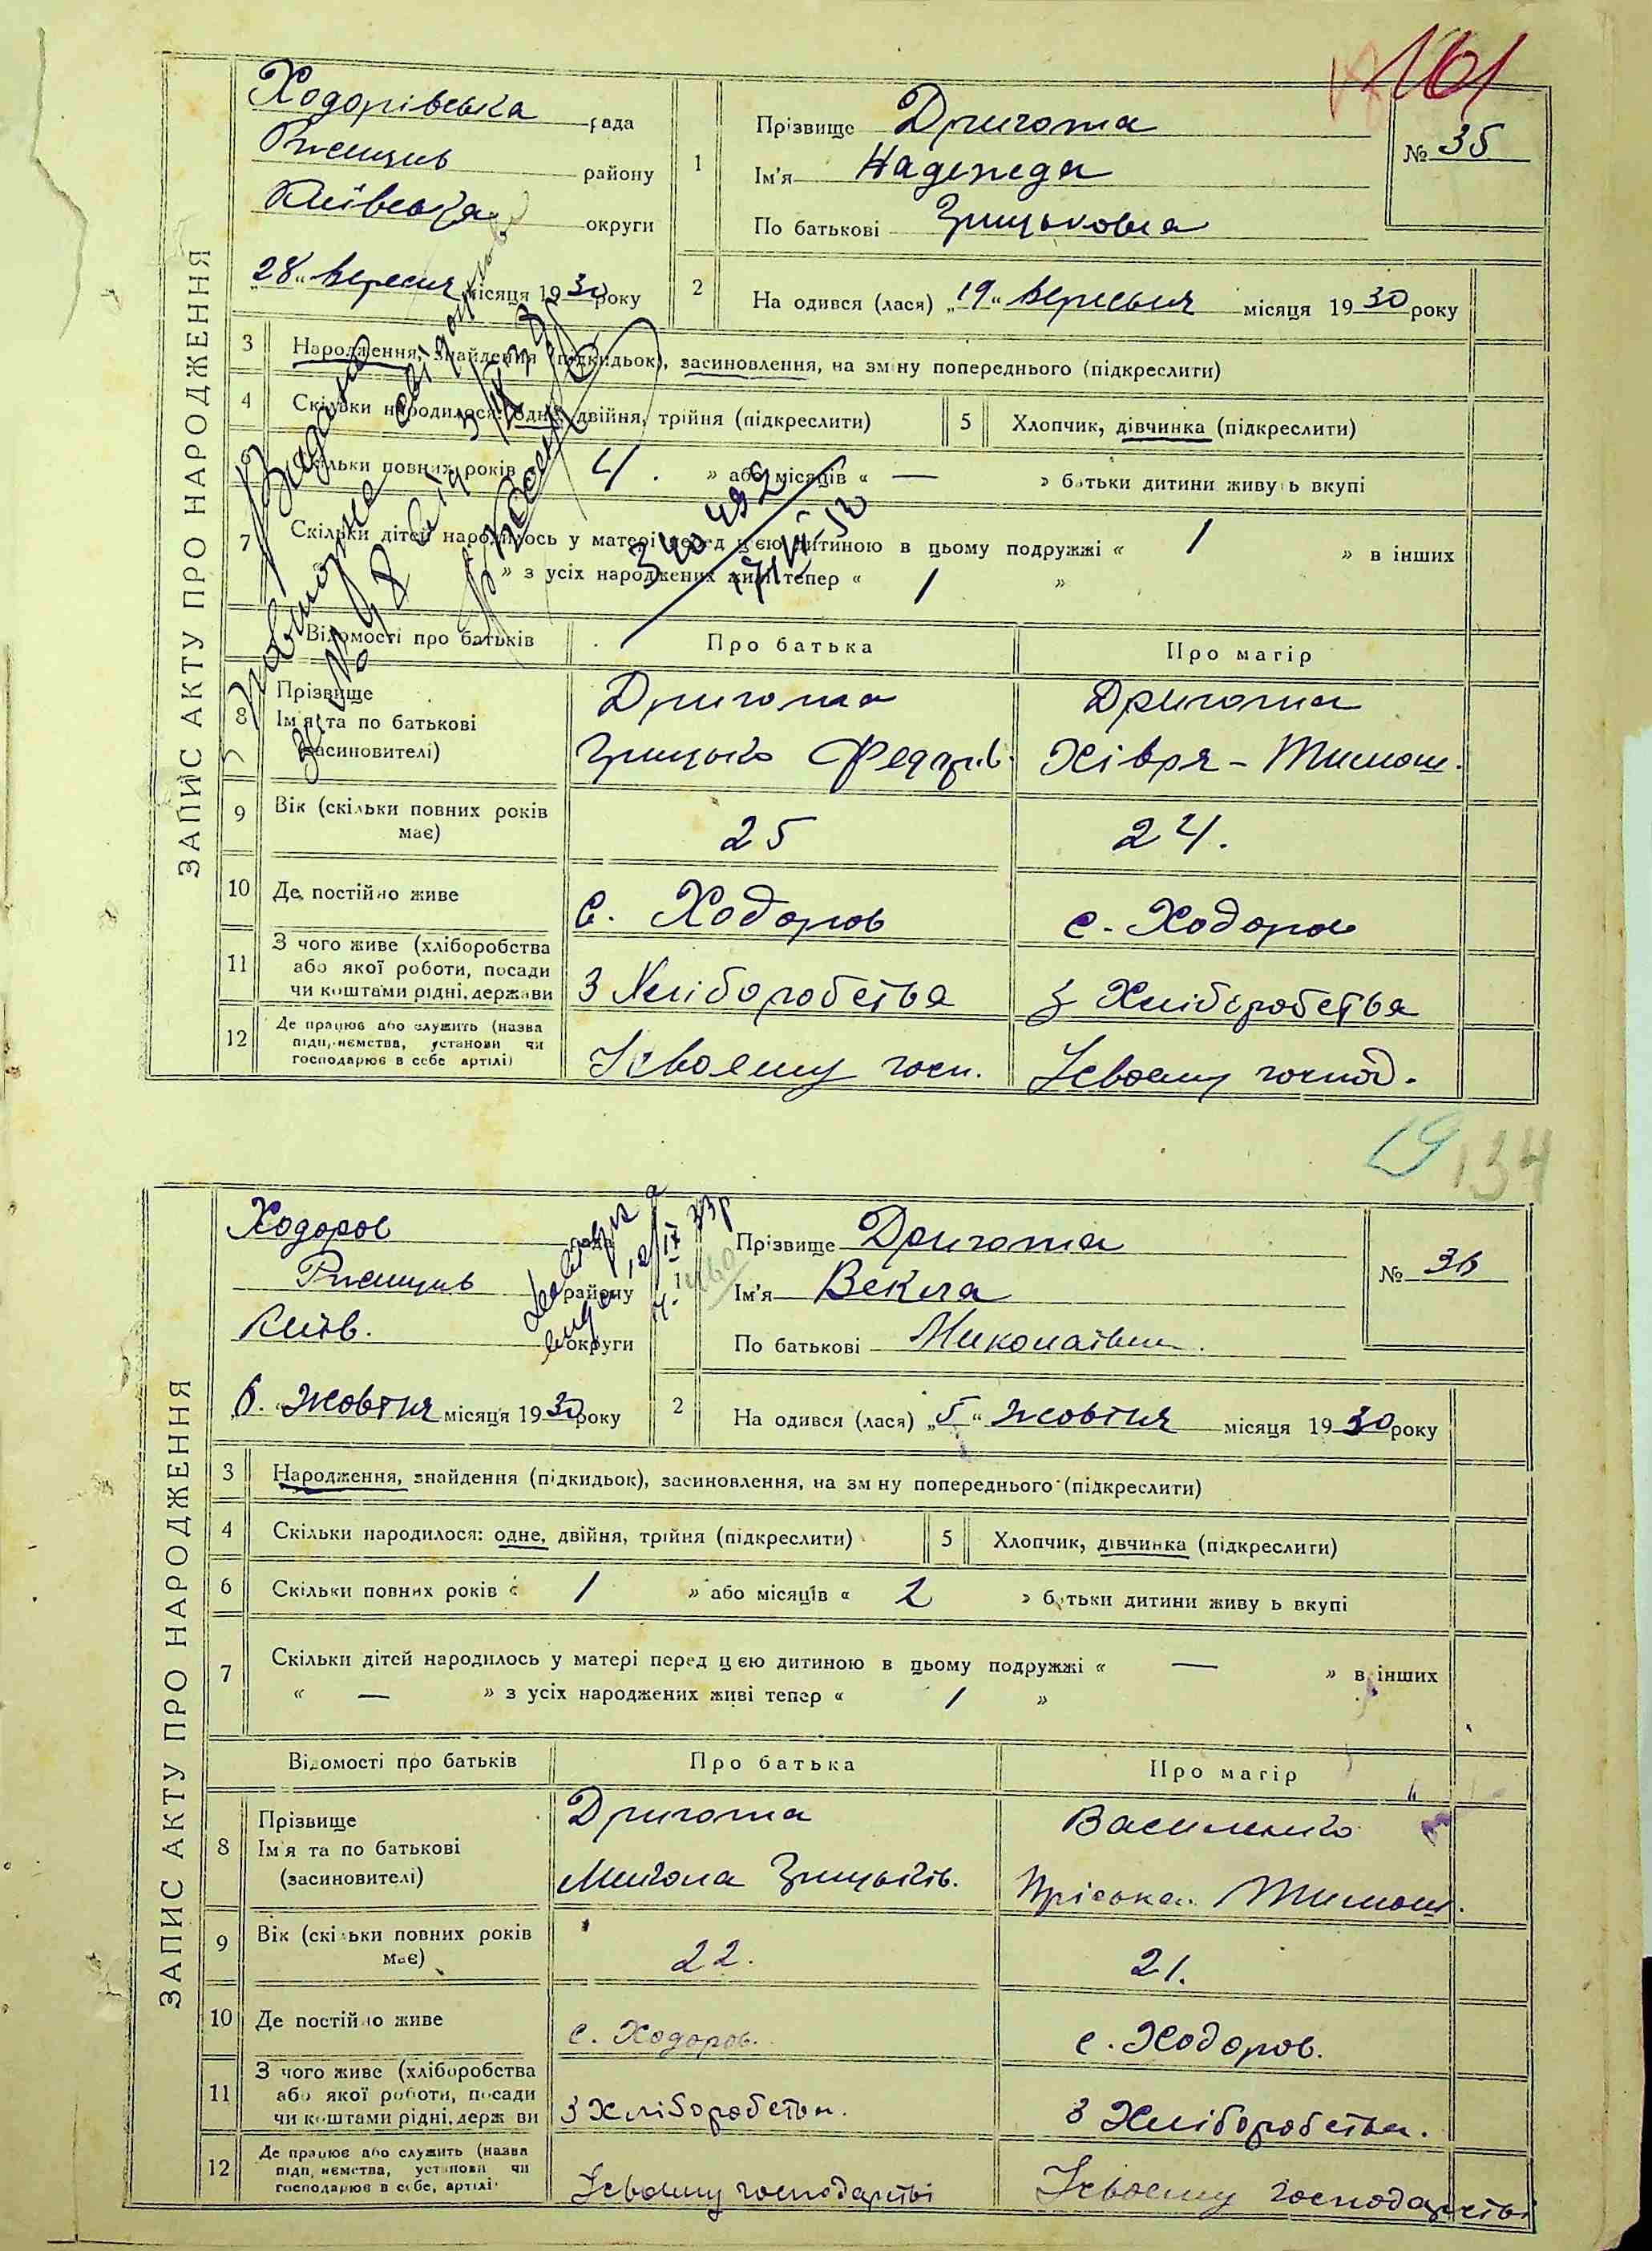 161
ЗАПИС АКТУ ПРО НАРОДЖЕННЯ
Ходорівська рада
Ржищив району
Київська округи
28 Вересня місяця 1930 року
1
Прізвище Дригота
Ім'я Надежда
По батькові Грицьковна
№ 35
2
На одився (лася) „19“ Вересьня місяця 1930 року
3 Народження, знайдення (підкидьок), засиновлення, на зм ну попереднього (підкреслити)
4 Скільки народилося: одне, двійня, трійня (підкреслити)
5 Хлопчик, дівчинка (підкреслити)
6 Скільки повних років « 4. » або місяців « — » батьки дитини живу ь вкупі
7 Скільки дітей народилось у матері перед цією дитиною в цьому подружжі « 1 » в інших
» з усіх народжених живі тепер « 1 »
Видано
повторне свідоцтво
Відомості про батьків Про батька Про матір
8 Прізвище Дригота Дригота
Ім'я та по батькові
(засиновителі) Грицько Федорів. Хівря - Тимош.
9 Вік (скільки повних років має) 25 24.
10 Де постійно живе с. Ходоров с. Ходоров
11 З чого живе (хліборобства
або якої роботи, посади
чи коштами рідні, держави З Хліборобства з Хліборобства
12 Де працює або служить (назва
підприємства, установи чи
господарює в себе артілі) Усвоєму госп. Усвоєму господ.
19 134
ЗАПИС АКТУ ПРО НАРОДЖЕННЯ
Ходоров рада
Ржищив району
Київ. округи
6. Жовтня місяця 1930 року
1
Прізвище Дригота
Ім'я Векла
По батькові Миколаївна
№ 36
2
На одився (лася) „5“ жовтня місяця 1930 року
3 Народження, знайдення (підкидьок), засиновлення, на зм ну попереднього (підкреслити)
4 Скільки народилося: одне, двійня, трійня (підкреслити)
5 Хлопчик, дівчинка (підкреслити)
6 Скільки повних років « 1 » або місяців « 2 » б тьки дитини живу ь вкупі
7 Скільки дітей народилось у матері перед цією дитиною в цьому подружжі « — » в інших
« — » з усіх народжених живі тепер « 1 »
Відомості про батьків Про батька Про матір
8 Прізвище Дригота Василенко
Ім'я та по батькові
(засиновителі) Микола Грицьків. Пріська. Тимош.
9 Вік (скільки повних років має) 22. 21.
10 Де постійно живе с. Ходоров. с. Ходоров.
11 З чого живе (хліборобства
або якої роботи, посади
чи коштами рідні, держ ви З Хліборобства. З Хліборобства.
12 Де працює або служить (назва
підприємства, установи чи
господарює в себе, артілі Усвоєму господарстві Усвоєму господарстві